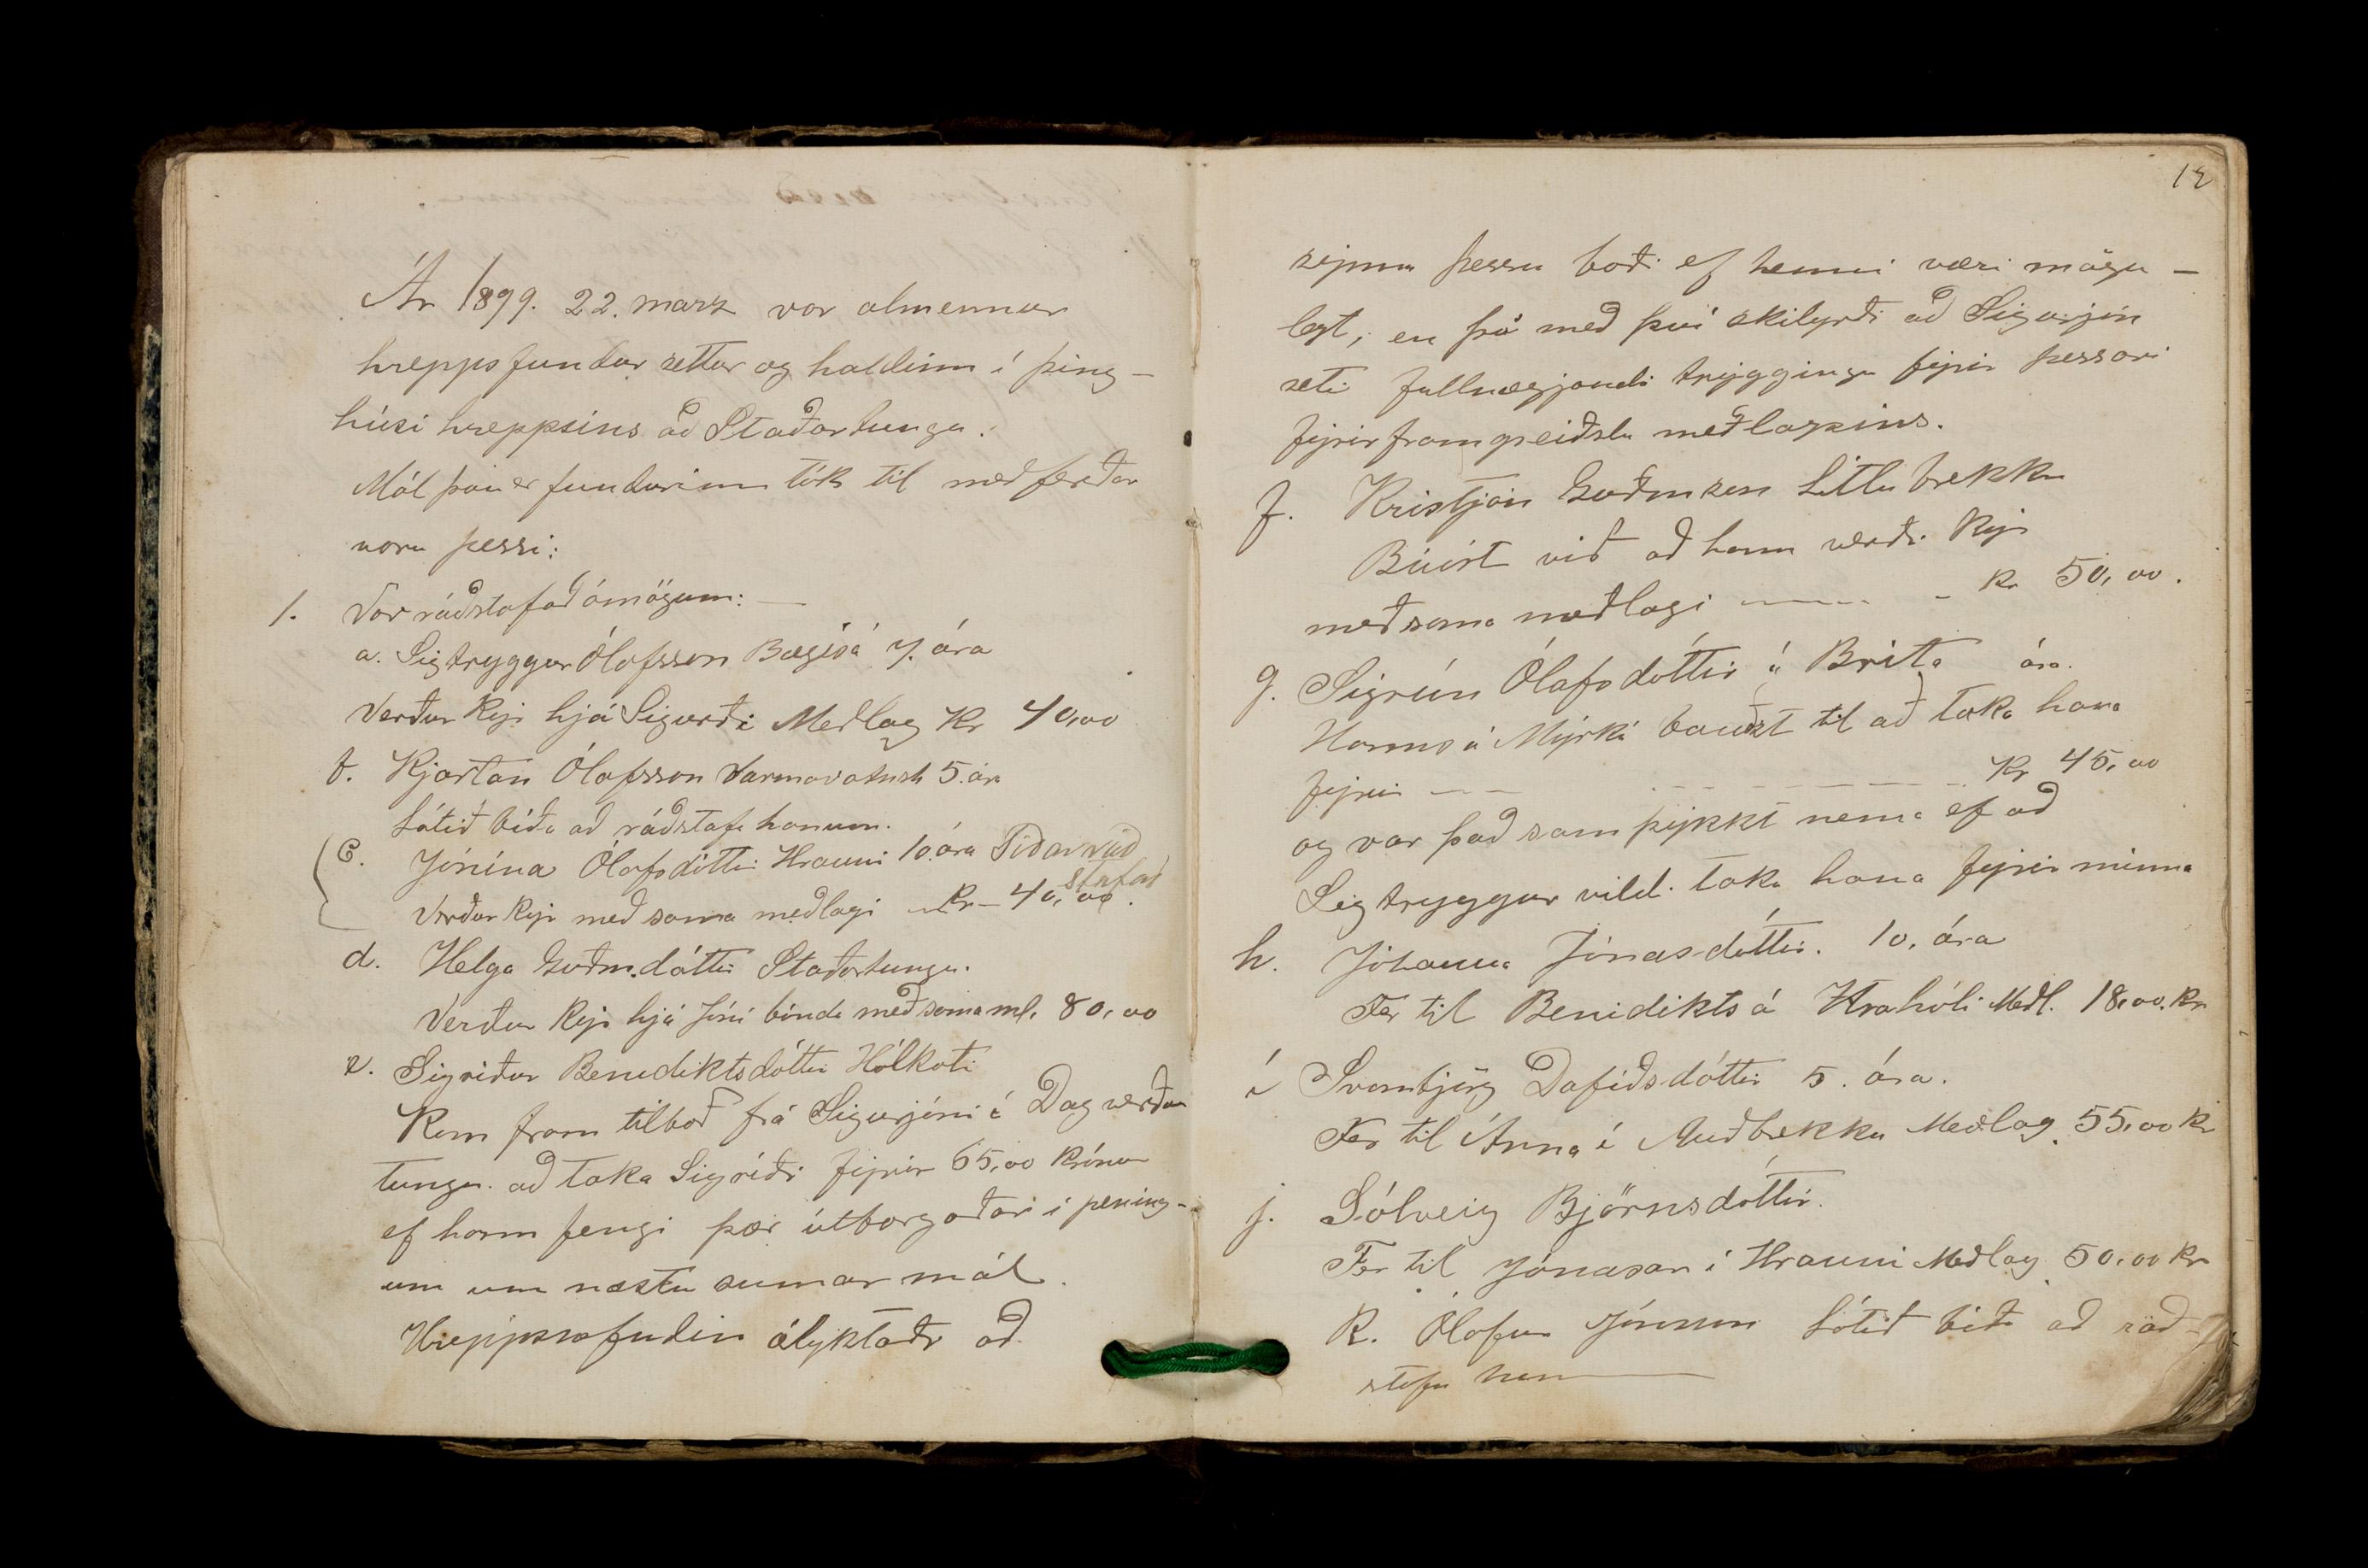 Ár 1899. 22. marz var almennur
hreppsfundur settur og haldinn í þing-
húsi hreppsins að Staðartungu.
Mál þau er fundurinn tók til meðferðar
voru þessi:
1. Var ráðstafað ómögum:—
a. Sigtryggur Ólafsson Bægisá 7. ára
Verður kyr hjá Sigurði Meðlag Kr 40,00
b. Kjartan Ólafsson Varmavatnsh 5. ára
Látið bíða að ráðstafa honum.
c. Jónína Ólafsdóttir Hrauni 10. ára Síðar ráð
stafað
Verður kyr með sama meðlagi — Kr — 40,00.
d. Helga Guðm.dóttir Staðartungu.
Verður kyr hjá Jóni bónda með sama ml. 80,00
e. Sigríður Benediktsdóttir Hólkoti
Kom fram tilboð frá Sigurjóni í Dagverðar
tungu. að taka Sigríði fyrir 65,00 krónur
ef hann fengi þær útborgaðar í pening-
um um næstu sumarmál.
Hreppsnefndin ályktaði að
12
sinna þessu boði ef henni væri mögu-
legt; en þó með því skilyrði að Sigurjón
seti fullnægjandi tryggingu fyrir þessari
fyrirframgreiðslu meðlagsins.
f. Kristján Guðmsson Litlubrekku
Búist við að hann verði kyr
með sama meðlagi —— - Kr 50,00.
g. Sigrún Ólafsdóttir á ára.
Hannes á Myrká bauðst til að taka hana
fyrir —— Kr 45,00
og var það samþykkt nema ef að
Sigtryggur vildi taka hana fyrir minna
h. Jóhanna Jónasdóttir. 10. ára
Fer til Benidikts á Hrahóli Meðl. 18,00. Kr
í Svanbjörg Dafíðsdóttir 5. ára.
Fer til Árna í Auðbrekku Meðlag. 55,00 Kr
j. Sólveig Björnsdóttir.
Fer til Jónasar í Hrauni Meðlag 50,00 Kr
K. Ólafur Jónsson Látið bíða að ráð-
stafa hon——